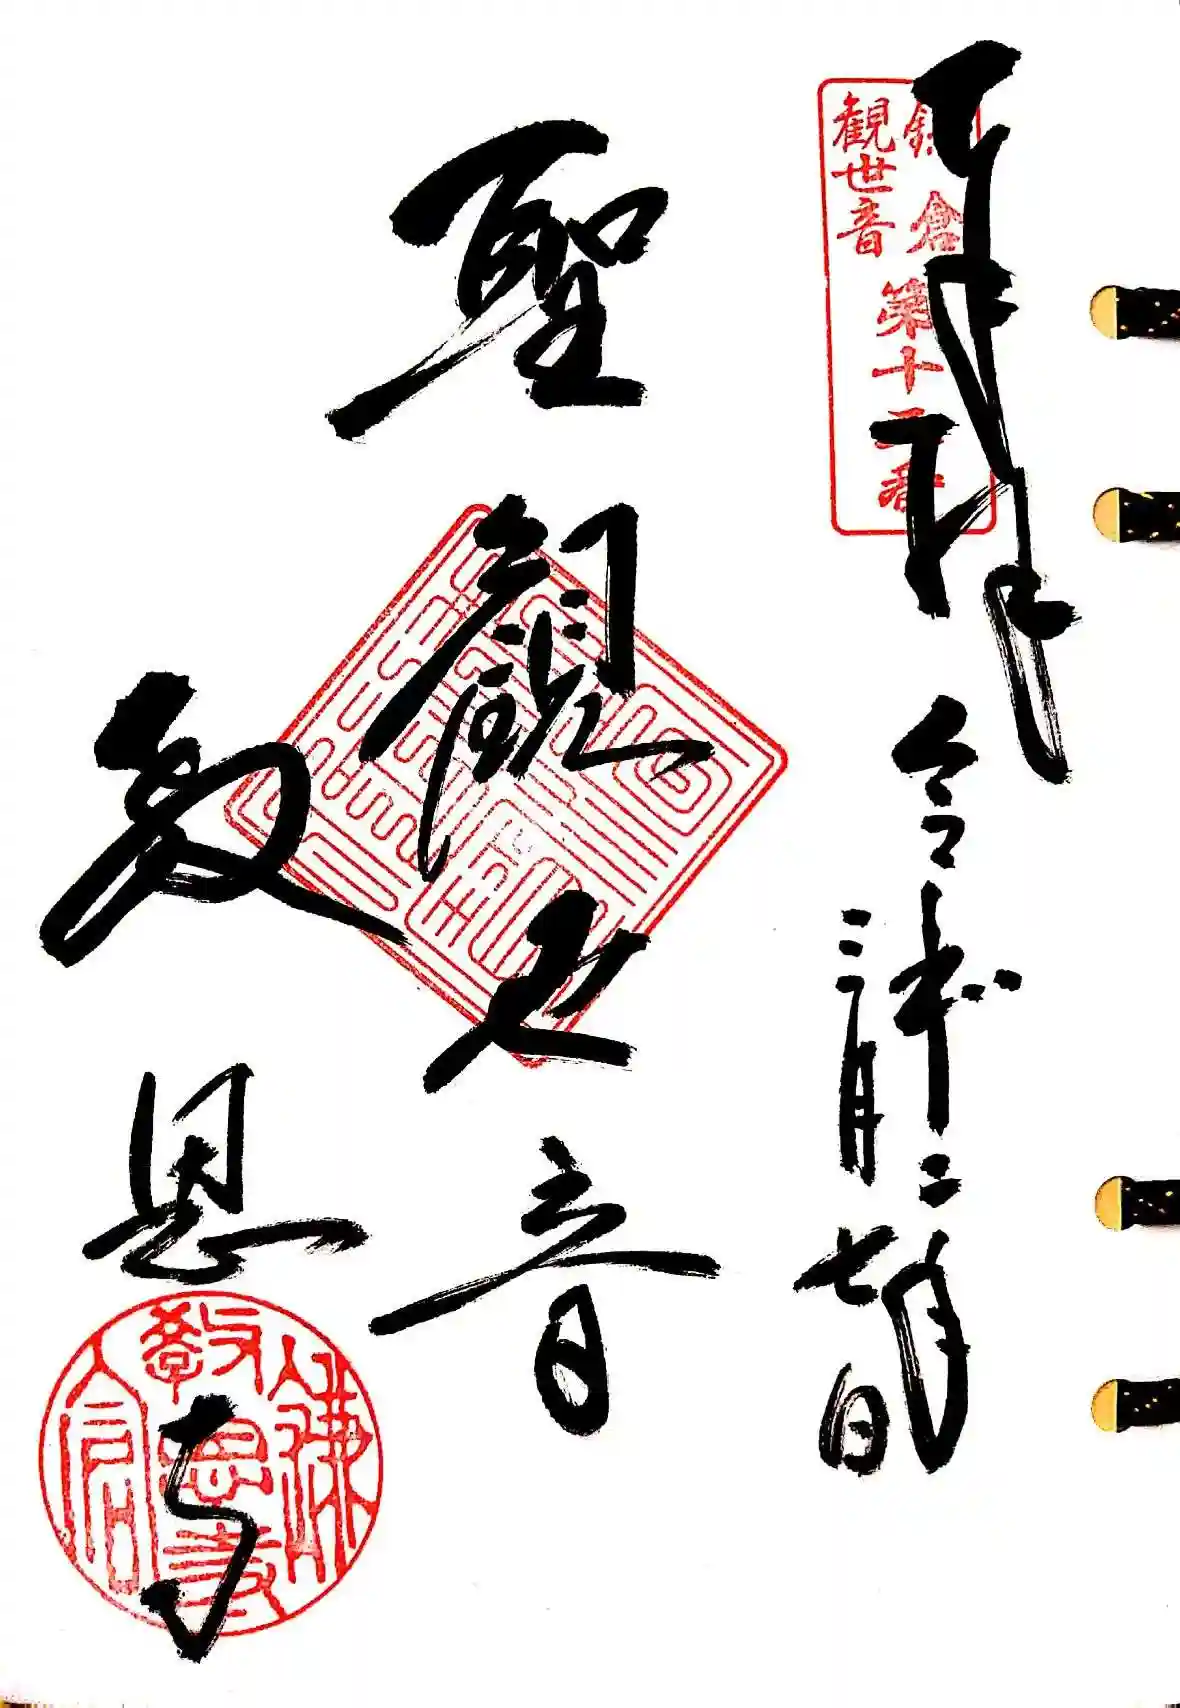 奉拝
令和二年
三月七日
鎌倉
観世音
第十二番
聖観世音
教恩寺
鎌倉
教恩寺